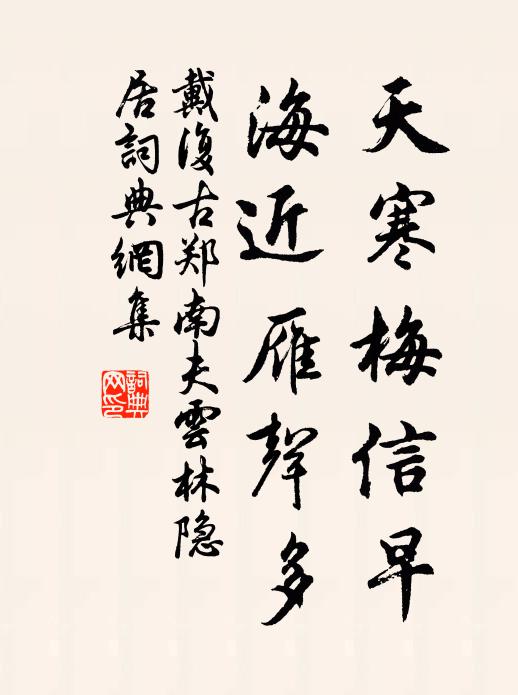 天寒梅信早
海近雁聲多
戴復古郑南夫雲林隐
居詞典網集
詞典
网印